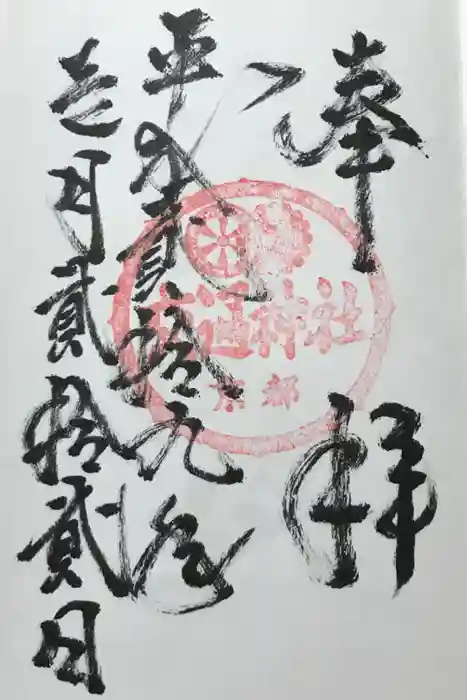 奉拝
平成貳拾九年
壱月貳拾貳日
交通神社
京都